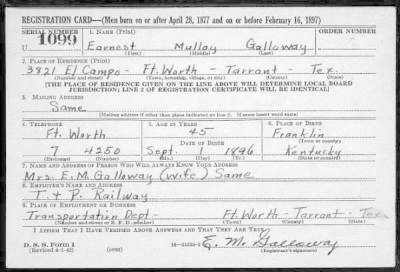 REGISTRATION CARD—(Men born on or after April 28, 1877 and on or before February 16, 1897)
SERIAL NUMBER 1. NAME (Print) ORDER NUMBER
U 1099 Earnest Mulloy Galloway
(First) (Middle) (Last)
2. PLACE OF RESIDENCE (Print)
3821 El Campo - Ft. Worth - Tarrant - Tex.
(Number and street) (Town, township, village, or city) (County) (State)
[THE PLACE OF RESIDENCE GIVEN ON THE LINE ABOVE WILL DETERMINE LOCAL BOARD
JURISDICTION; LINE 2 OF REGISTRATION CERTIFICATE WILL BE IDENTICAL]
3. MAILING ADDRESS
Same
[Mailing address if other than place indicated on line 2. If same insert word same]
4. TELEPHONE 5. AGE IN YEARS 6. PLACE OF BIRTH
Ft. Worth 45 Franklin
DATE OF BIRTH (Town or county)
7 4250 Sept. 1 1896 Kentucky
(Exchange) (Number) (Mo.) (Day) (Yr.) (State or country)
7. NAME AND ADDRESS OF PERSON WHO WILL ALWAYS KNOW YOUR ADDRESS
Mrs. E. M. Galloway (wife) Same
8. EMPLOYER'S NAME AND ADDRESS
T. & P. Railway
9. PLACE OF EMPLOYMENT OR BUSINESS
Transportation Dept - Ft. Worth - Tarrant - Tex
(Number and street or R. F. D. number) (Town) (County) (State)
I AFFIRM THAT I HAVE VERIFIED ABOVE ANSWERS AND THAT THEY ARE TRUE.
D. S. S. Form 1
(Revised 4-1-42) E. M. Galloway
(Registrant's signature)